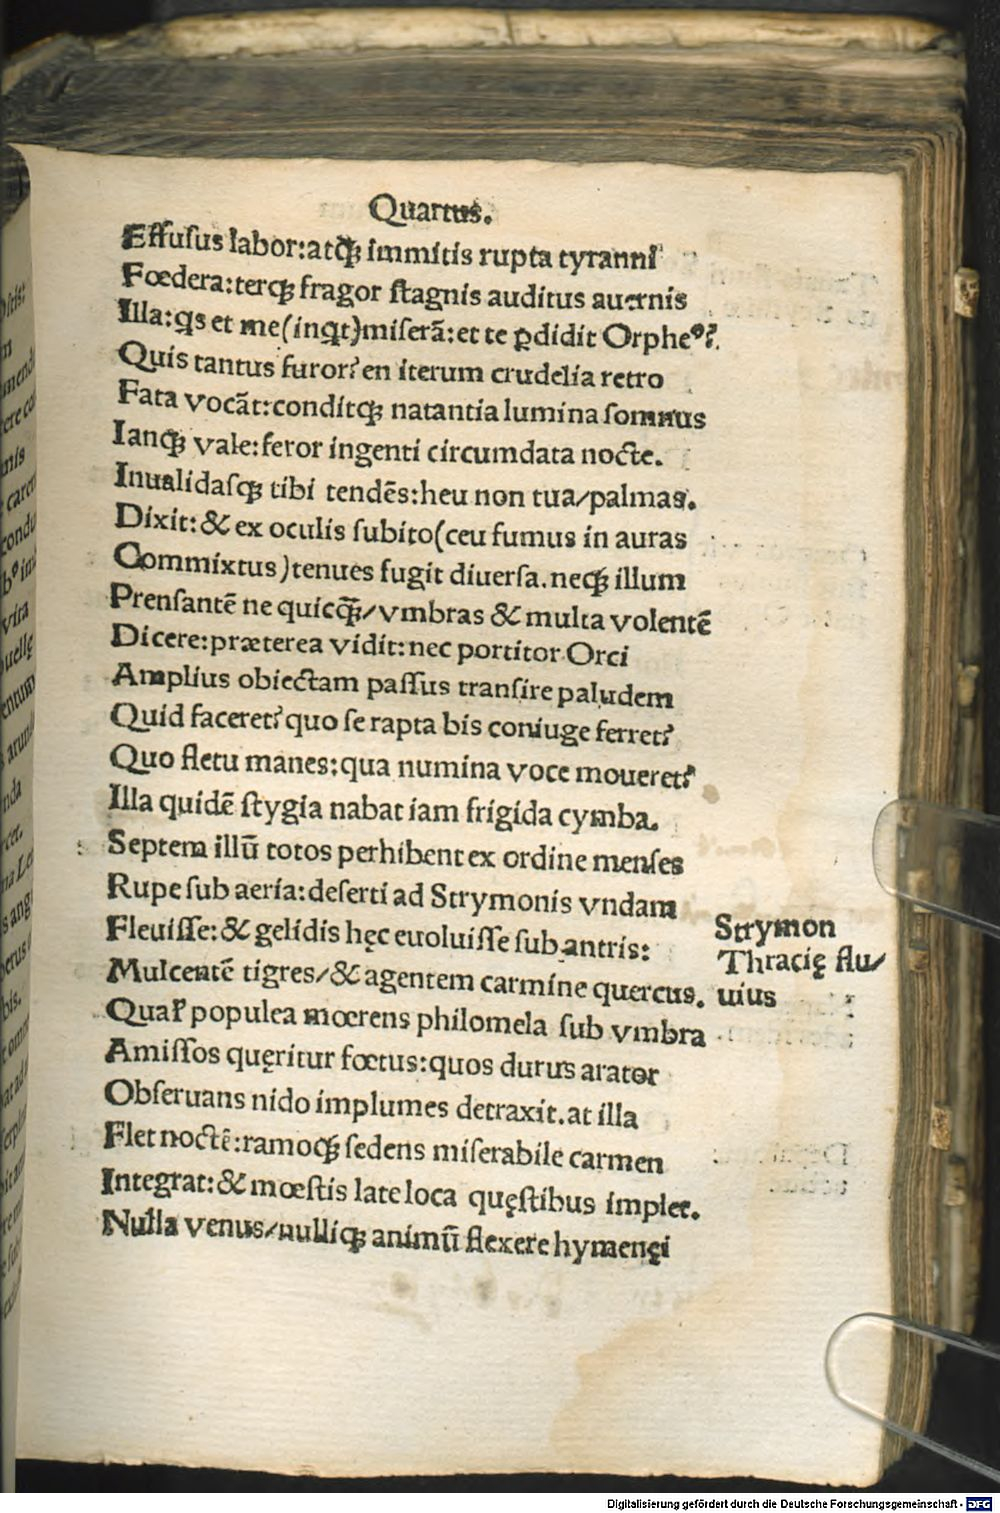 Quartus.
Effuſus labor:atq́; immitis rupta tyranni
Fœdera:terq́; fragor ſtagnis auditus auernis
Illa:q̃s et me(inq̃t)miſerã:et te ꝑdidit Orpheꝰ?
Quis tantus furor? en iterum crudelia retro
Fata vocãt:conditq́; natantia lumina ſomnus
Ianq́; vale:feror ingenti circumdata nocte.
Inualidaſq́; tibi tendẽs:heu non tua/palmas.
Dixit:& ex oculis ſubito(ceu fumus in auras
Commixtus)tenues fugit diuerſa.neq́; illum
Prenſantẽ ne quicq̃;/vmbras & multa volentẽ
Dicere:præterea vidit:nec portitor Orci
Amplius obiectam paſſus tranſire paludem
Quid faceret? quo ſe rapta bis coniuge ferret?
Quo fletu manes:qua numina voce moueret?
Illa quidẽ ſtygia nabat iam frigida cymba.
Septem illũ totos perhibent ex ordine menſes
Rupe ſub aeria:deſerti ad Strymonis vndam
Fleuiſſe:& gelidis hęc euoluiſſe ſub antris:
Mulcentẽ tigres/& agentem carmine quercus.
Qualꝭ populea mœrens philomela ſub vmbra
Amiſſos quęritur fœtus:quos durus arator
Obſeruans nido implumes detraxit.at illa
Flet noctẽ:ramoq́; ſedens miſerabile carmen
Integrat:& mœſtis late loca quęſtibus implet.
Nulla venus/nulliq́; animũ flexere hymenęi
Strymon
Thracię flu/
uius
Digitalisierung gefördert durch die Deutsche Forschungsgemeinschaft - DFG